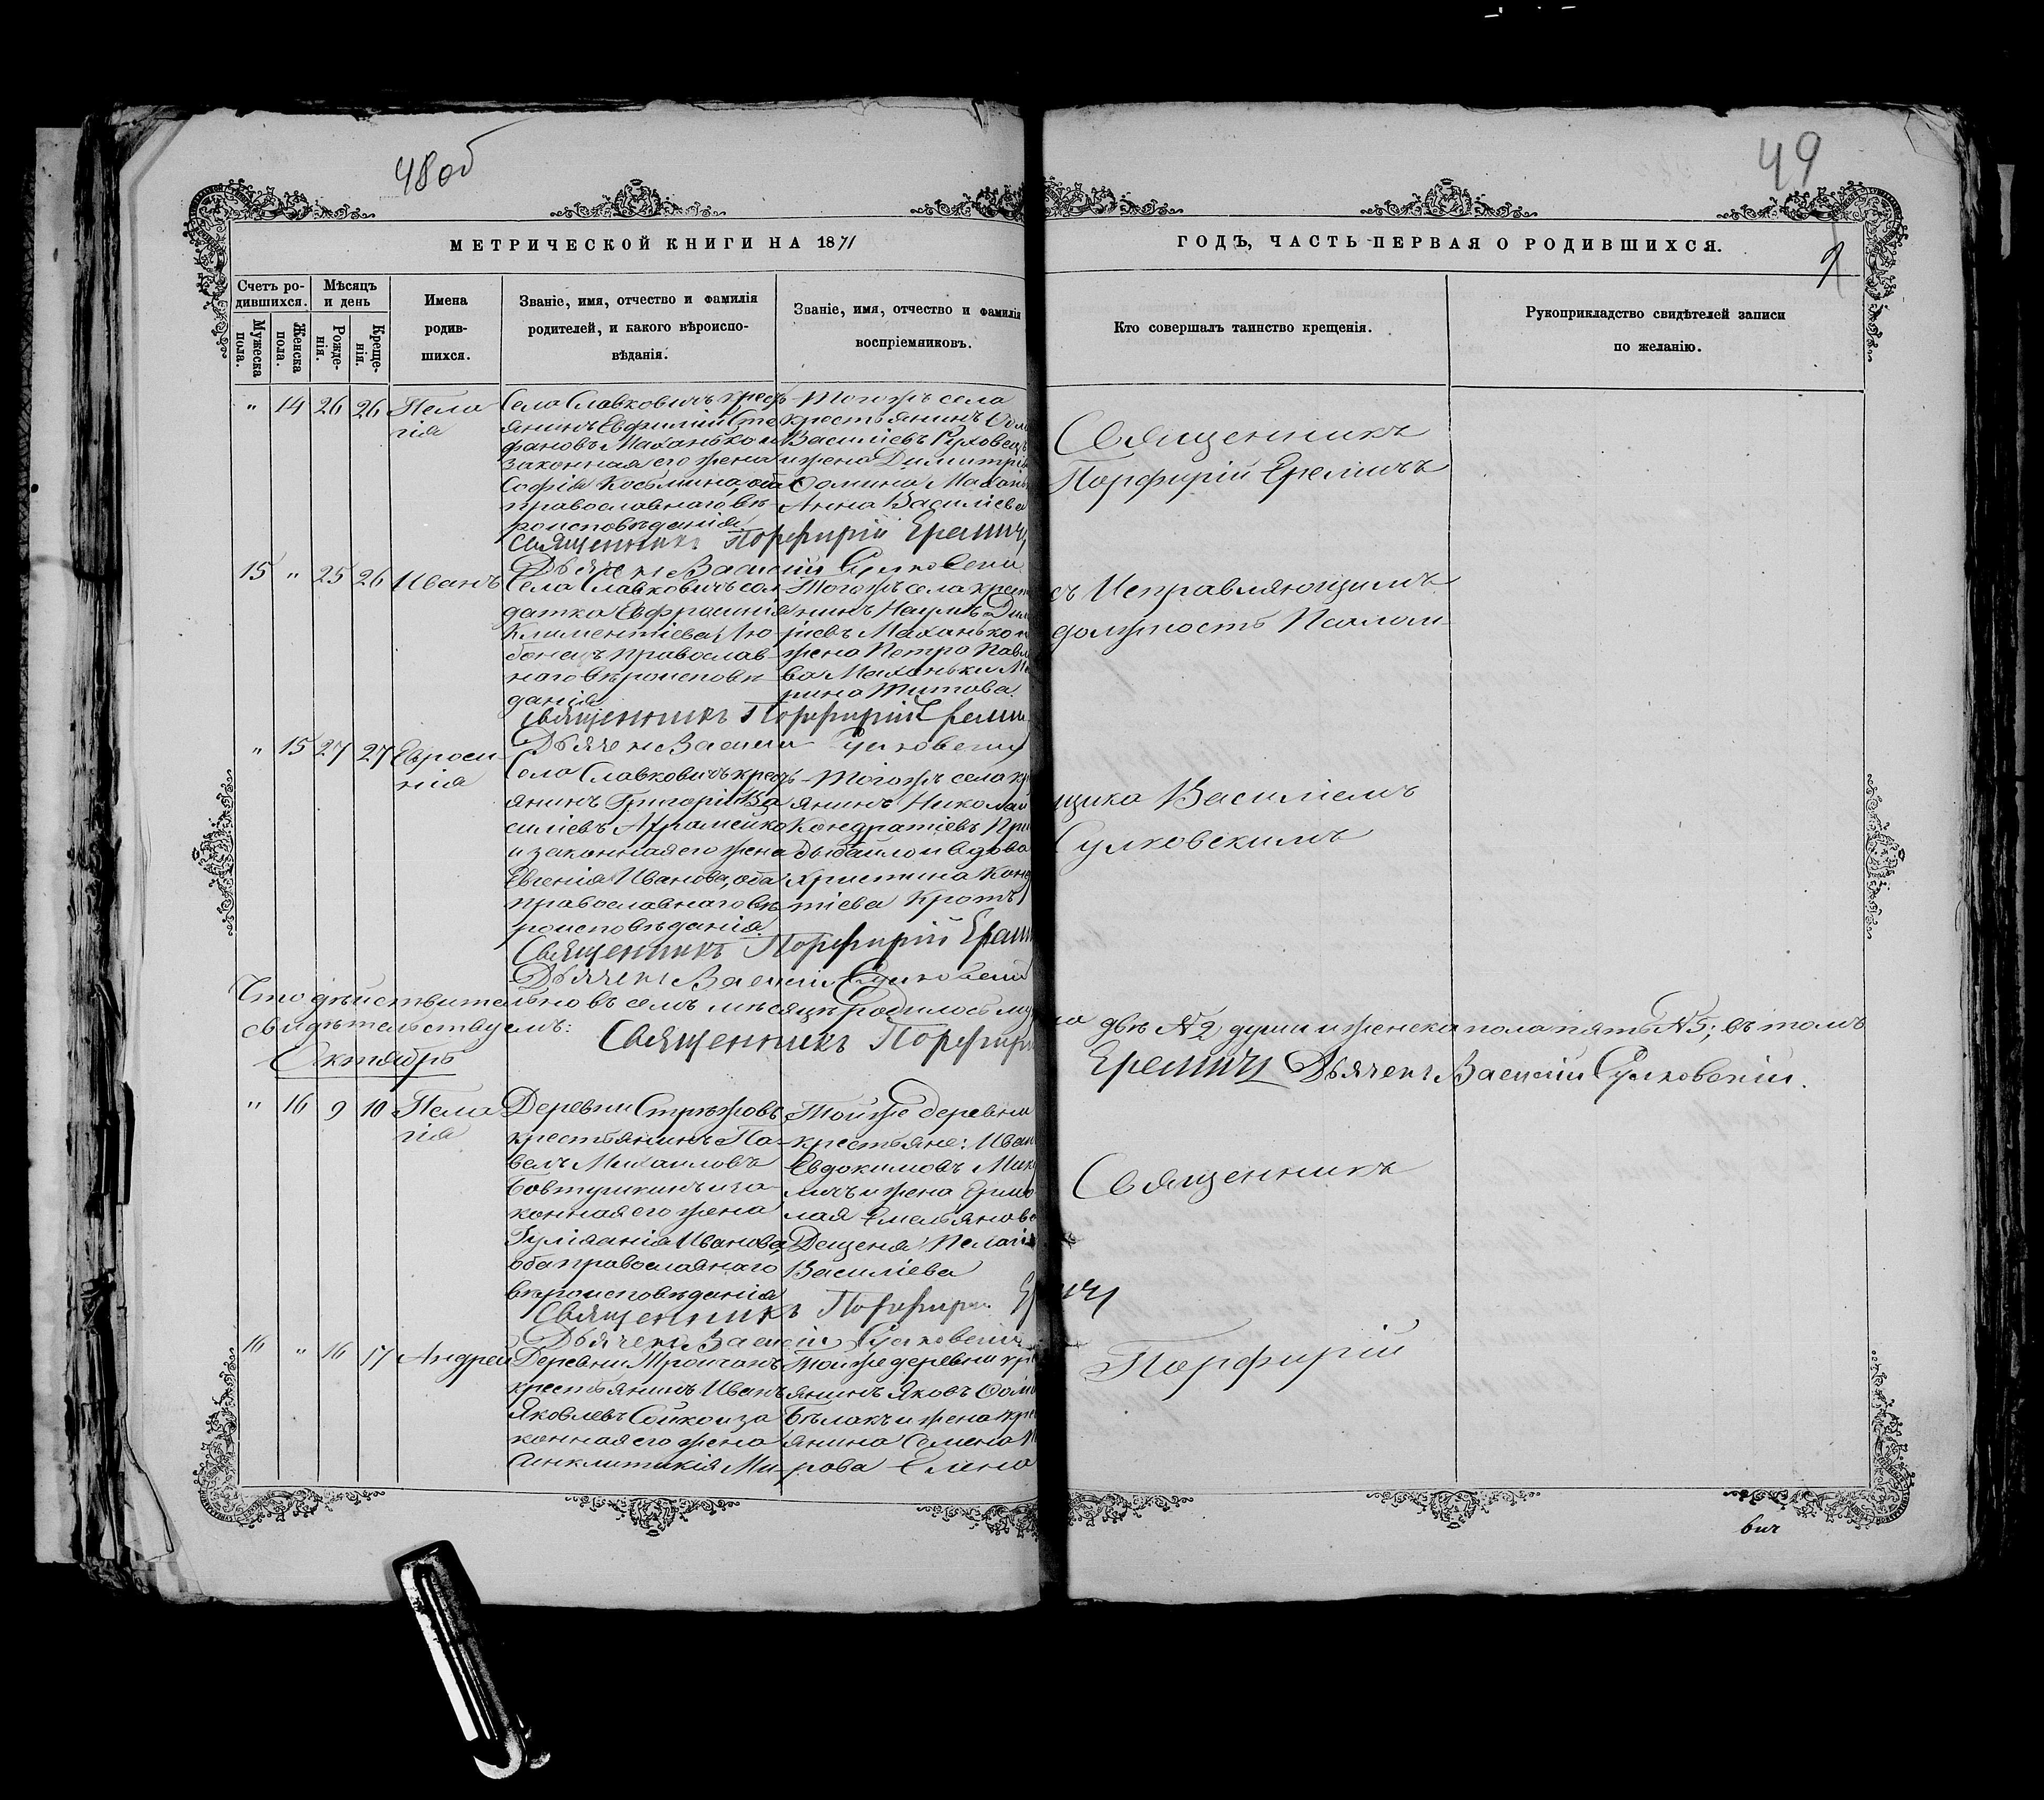 48об
49
МЕТРИЧЕСКОЙ КНИГИ НА 1871
ГОДЪ, ЧАСТЬ ПЕРВАЯ О РОДИВШИХСЯ.
9
Счетъ ро-
дившихся.
Мужеска
пола.
Женска
пола.
Мѣсяцъ
и день
Рожде-
нія.
Креще-
нія.
Имена
родив-
шихся.
Званіе, имя, отчество и фамилія
родителей, и какого вѣроиспо-
вѣданія.
Званіе, имя, отчество и фамилія
воспріемниковъ.
Кто совершалъ таинство крещенія.
Рукоприкладство свидѣтелей записи
по желанію.
" 14 26 26 Пела
гія
Села Славковичъ крест
янинъ Евфимій Сте
фановъ Маханько и
законная его жена
Софія Косьмина, оба
православнаго вѣ-
роисповѣданія
Тогожъ села
крестьянинъ
Василіевъ
и жена Димитрія
Фомина
Анна Василіева
Священникъ
Порфирій Еремичъ
Священникъ Порфирій Еремичъ
Дьячекъ Василій Сулковскій
15 " 25 26 Иванъ
Села Славковичъ сол
датка Евфросинія
Климентіева Лю
бонецъ православ-
наго вѣроисповѣ
данія
Тогожъ села крест
нинъ Наумъ Дим
ріевъ Маханько и
жена Петра Павл
ва Маханьки
рина Титова.
съ Исправляющимъ
должность Псалом
Священникъ Порфирій Ереми
Дьячекъ Василій Сулковскій
" 15 27 27 Евроси
нія
Села Славковичъ крест-
янинъ Григорій Ва
силіевъ Аврамейко
и законная его жена
Евгенія Иванова, оба
православнаго вѣ
роисповѣданія.
Тогожъ села кр
янинъ Николай
Кондратіевъ При
дыбайло и вдова
Христина Конд
тіева Кротъ
щика Василіемъ
Сулковскимъ
Священникъ Порфирій Ереми
Дьячекъ Василій Сулковскій
Что дѣйствительно въ семъ мѣсяцѣ родилось му
ла двѣ №2 души и женска пола пять №5; въ томъ
свидѣтельствуемъ:
Священникъ Порфирі
Еремичъ Дьячекъ Василій Сулковскій.
Октябрь
" 16 9 10 Пела
гія
Деревни Стрѣжовъ
крестьянинъ Па-
велъ Михаиловъ
Бовтушкинъ и за
конная его жена
Гуліянія Иванова,
оба православнаго
вѣроисповѣданія
Тойже деревни
крестьяне: Иван
Евдокимовъ Мик
личъ и жена Ермо
лая Емельянова
Дещеня Пелагія
Василіева
Священникъ
Священникъ Порфирій Ер
ичъ
Дьячекъ Василій Сулковскій
16 " 16 17 Андрей
Деревни Трончанъ
крестьянинъ Иванъ
Яковлевъ Сойко и за
конная его жена
Синклитикія Ми-
Тойже деревни кр
янинъ Яковъ Фом
Бѣлакъ и жена кре
янина Семена
рова Елена
Порфирій
вич